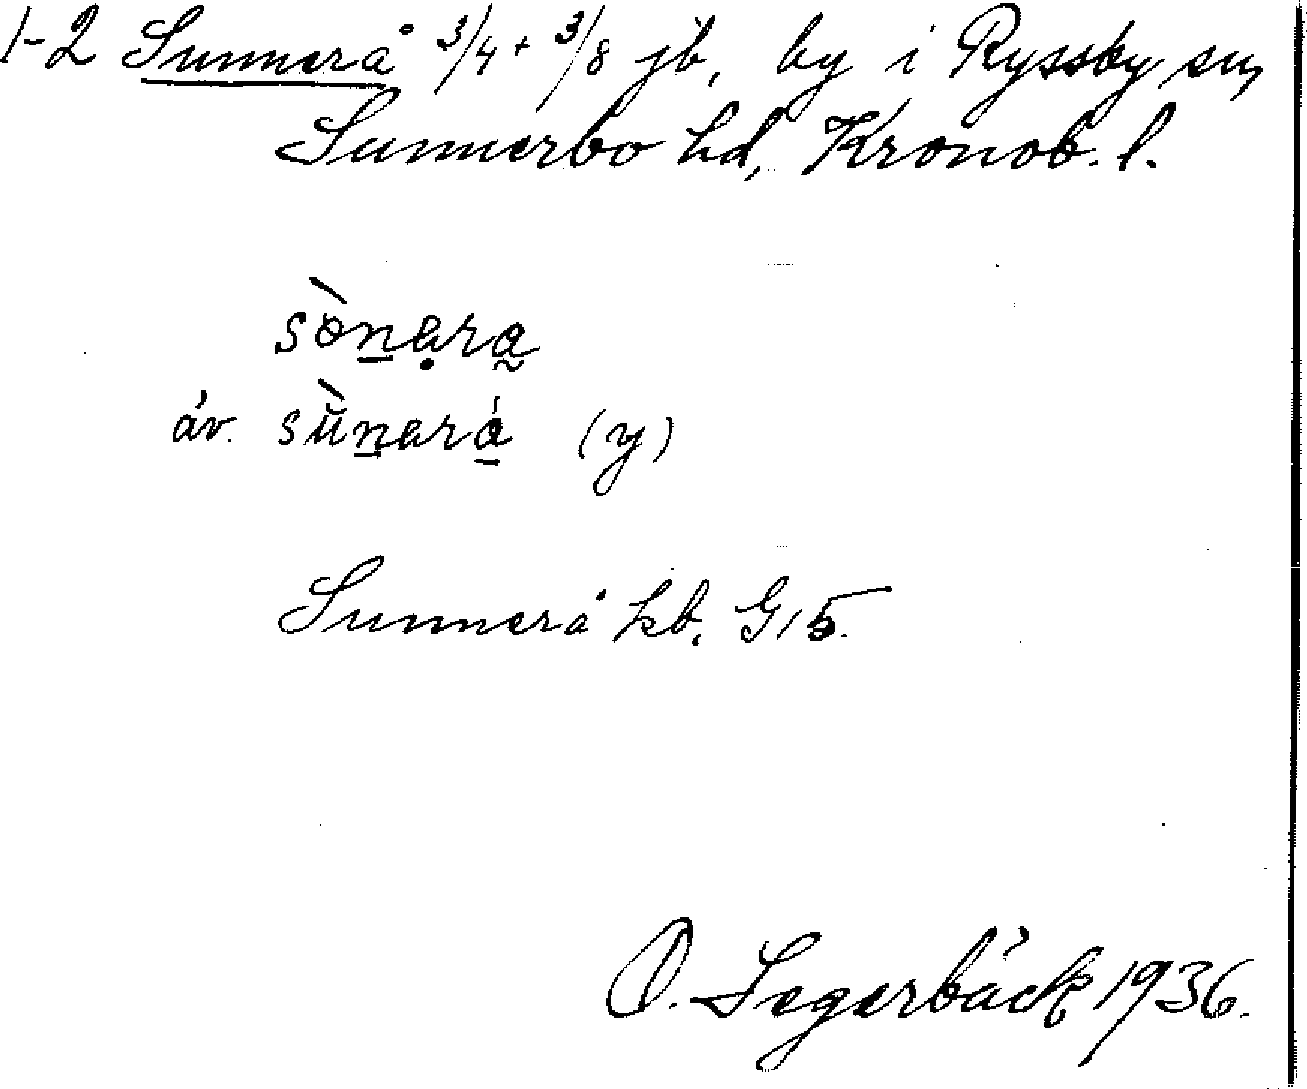 1-2 Sunnerå 3/4 + 3/8 jb, by i Ryssby sn,
Sunnerbo hd, Kronob. l.
sòn̲ạra̰
äv. sùn̲ará̲ (y)
Sunnerå kb. G15.
O. Segerbäck 1936.